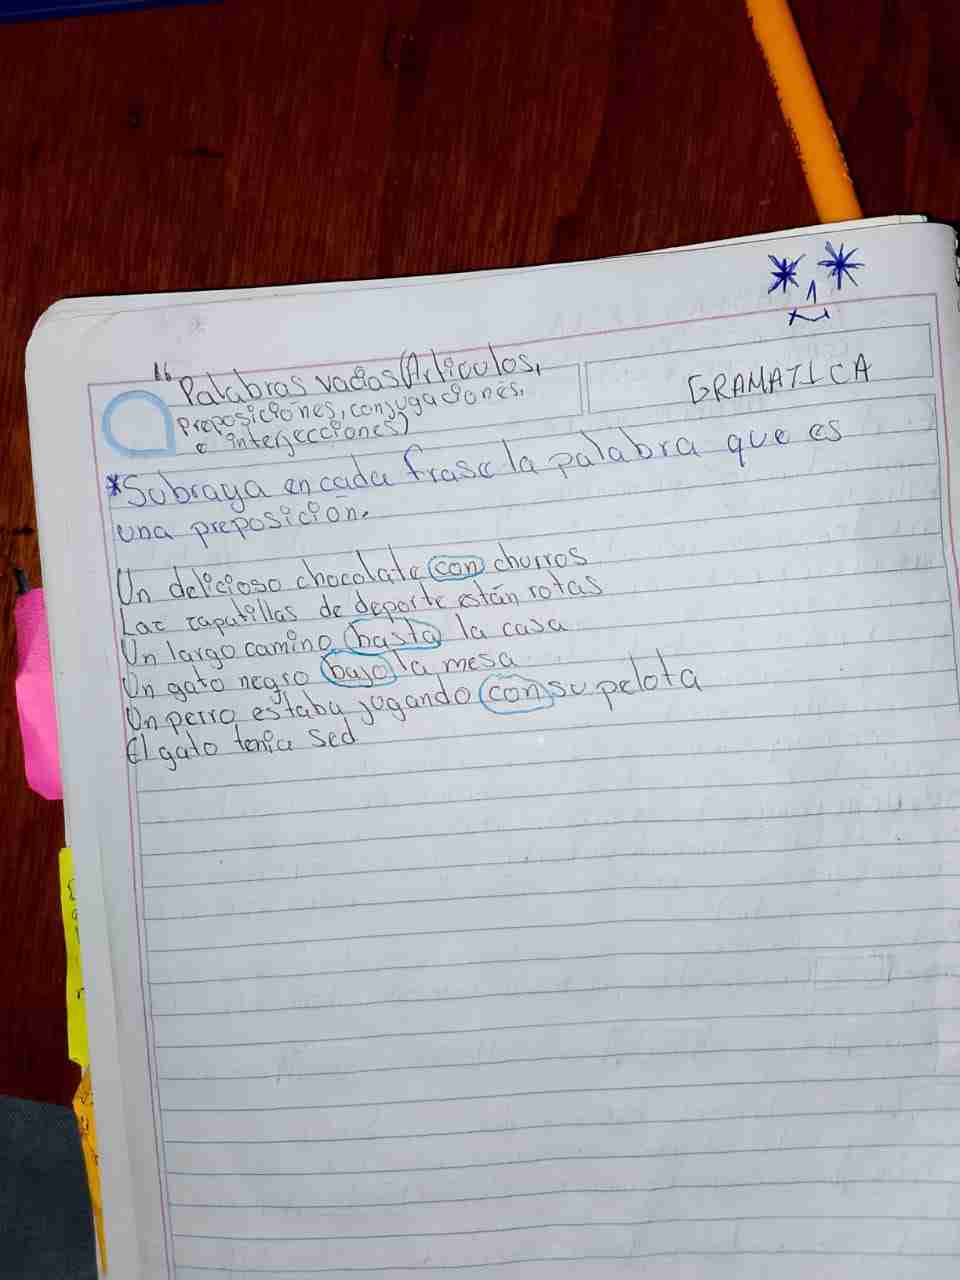 16
Palabras vacias (Articulos,
preposiciones, conjugaciones,
e interjecciones)
GRAMATICA
*Subraya en cada frase la palabra que es
una preposicion.
Un delicioso chocolate con churros
Las zapatillas de deporte están rotas
Un largo camino hasta la casa
Un gato negro bajo la mesa
Un perro estaba jugando con su pelota
El gato tenia sed